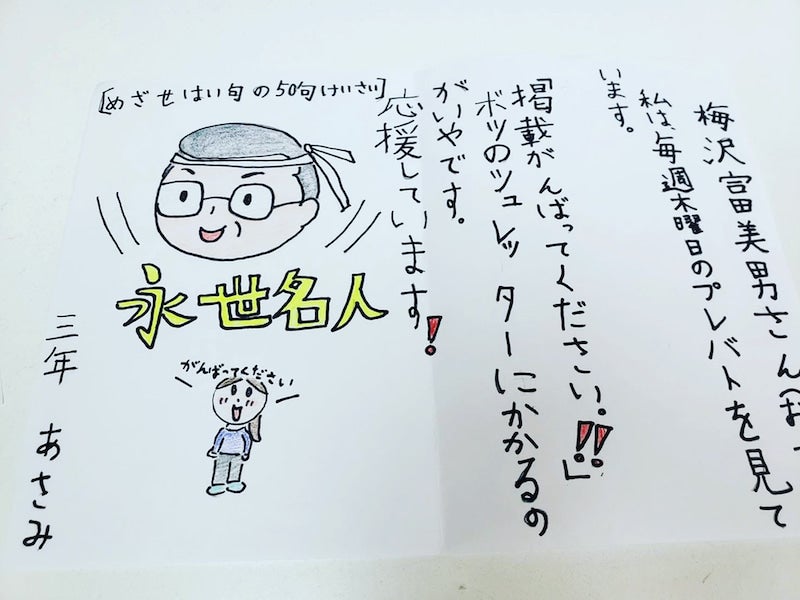 梅沢富美男さん
私は、毎週木曜日のプレバトを見て
います。
「掲載がんばってください。!!」
ボツのツュレッターにかかるの
がいやです。
応援しています!
[めざせはい句の50句けいさい]
永世名人
がんばってください
三年 あさみ